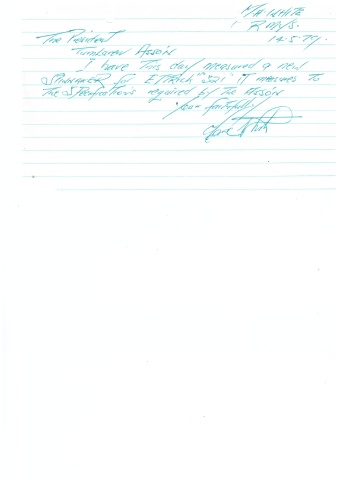 WHITE
14-5-79
The President
Twinkaren Assoin
I have this day measured a new
SPINNAKER for ETTRICK "321" it measures to
the Specifications required by the Assoin
your faithfully